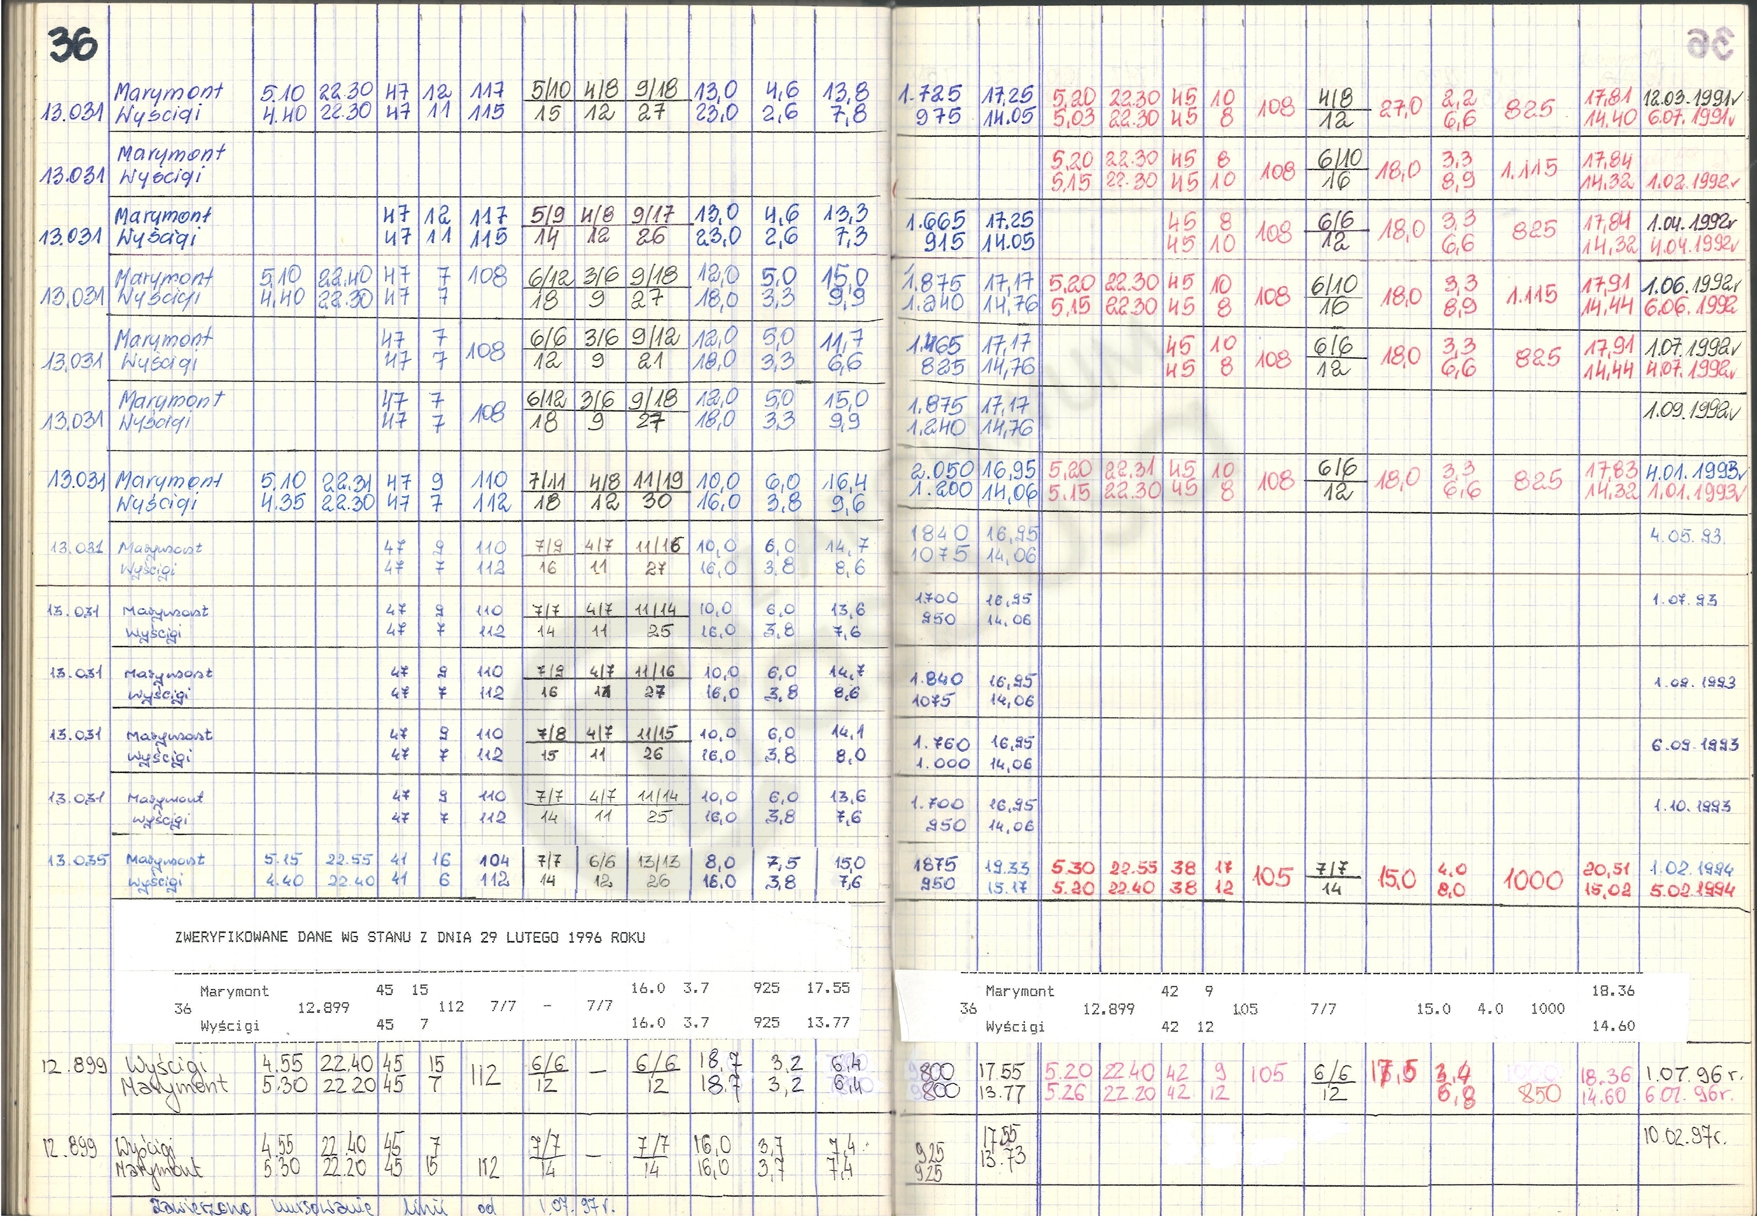 36
Marymont 5.10 22.30 47 12 117 5/10 4/8 9/18 13,0 4,6 13,8 1.725 17,25 5,20 22.30 45 10 108 4/8 27,0 2,2 825 17,81 12.03.1991r
13.031 Wyścigi 4.40 22.30 47 11 115 15 12 27 23,0 2,6 7,8 975 14.05 5,03 22.30 45 8 12 6,6 14.40 6.07.1991r
Marymont 5,20 22.30 45 8 108 6/10 18,0 3,3 1.115 17,84
13.031 Wyścigi 5,15 22.30 45 10 16 8,9 14,32 1.02.1992r
Marymont 47 12 117 5/9 4/8 9/17 13,0 4,6 13,3 1.665 17.25 45 8 108 6/6 18,0 3,3 825 17,84 1.04.1992r
13.031 Wyścigi 47 11 115 14 12 26 23,0 2,6 7,3 915 14.05 45 10 12 6,6 14,32 4.04.1992r
Marymont 5,10 22.40 47 7 108 6/12 3/6 9/18 12,0 5,0 15,0 1.875 17,17 5,20 22.30 45 10 108 6/10 18,0 3,3 1.115 17,91 1.06.1992r
13,031 Wyścigi 4.40 22.30 47 7 18 9 27 18,0 3,3 9,9 1.240 14,76 5,15 22.30 45 8 16 8,9 14,44 6.06.1992
Marymont 47 7 108 6/6 3/6 9/12 12,0 5,0 11,7 1.465 17,17 45 10 108 6/6 18,0 3,3 825 17,91 1.07.1992r
13,031 Wyścigi 47 7 12 9 21 18,0 3,3 6,6 825 14,76 45 8 12 6,6 14,44 4.07.1992r
Marymont 47 7 108 6/12 3/6 9/18 12,0 5,0 15,0 1.875 17,17 1.09.1992r
13.031 Wyścigi 47 7 18 9 27 18,0 3,3 9,9 1.240 14,76
13.031 Marymont 5.10 22.31 47 9 110 7/11 4/8 11/19 10,0 6,0 16,4 2.050 16,95 5,20 22.31 45 10 108 6/6 18,0 3,3 825 17,83 4.01.1993r
Wyścigi 4.35 22.30 47 7 112 18 12 30 16,0 3,8 9,6 1.200 14,06 5.15 22.30 45 8 12 6,6 14,32 1.01.1993r
13.031 Marymont 47 9 110 7/9 4/7 11/16 10,0 6,0 14,7 1840 16,95 4.05.93.
Wyścigi 47 7 112 16 11 27 16,0 3,8 8,6 1075 14,06
13.031 Marymont 47 9 110 7/7 4/7 11/14 10,0 6,0 13,6 1700 16,95 1.07.93
Wyścigi 47 7 112 14 11 25 16,0 3,8 7,6 950 14,06
13.031 Marymont 47 9 110 7/9 4/7 11/16 10,0 6,0 14,7 1.840 16,95 1.09.1993
Wyścigi 47 7 112 16 11 27 16,0 3,8 8,6 1075 14,06
13.031 Marymont 47 9 110 7/8 4/7 11/15 10,0 6,0 14,1 1.760 16,95 6.09.1993
Wyścigi 47 7 112 15 11 26 16,0 3,8 8,0 1.000 14,06
13.031 Marymont 47 9 110 7/7 4/7 11/14 10,0 6,0 13,6 1.700 16,95 1.10.1993
Wyścigi 47 7 112 14 11 25 16,0 3,8 7,6 950 14,06
13.035 Marymont 5.15 22.55 41 16 104 7/7 6/6 13/13 8,0 7,5 15,0 1875 19.33 5.30 22.55 38 17 105 7/7 15,0 4,0 1000 20,51 1.02.1994
Wyścigi 4.40 22.40 41 6 112 14 12 26 16,0 3,8 7,6 950 15.17 5.20 22.40 38 12 14 8,0 15,02 5.02.1994
ZWERYFIKOWANE DANE WG STANU Z DNIA 29 LUTEGO 1996 ROKU
Marymont 45 15 16.0 3.7 925 17.55 Marymont 42 9 18.36
36 12.899 112 7/7 - 7/7 36 12.899 105 7/7 15.0 4.0 1000
Wyścigi 45 7 16.0 3.7 925 13.77 Wyścigi 42 12 14.60
12.899 Wyścigi 4.55 22.40 45 15 112 6/6 — 6/6 18.7 3,2 6,4 800 17.55 5.20 22.40 42 9 105 6/6 17,5 3,4 18.36 1.07.96r.
Marymont 5.30 22.20 45 7 12 12 18.7 3,2 6,4 800 13.77 5.26 22.20 42 12 12 6,8 850 14.60 6.07.96r.
12.899 Wyścigi 4.55 22.40 45 7 7/7 — 7/7 16,0 3,7 7,4 925 17.55 10.02.97r.
Marymont 5.30 22.20 45 15 112 14 14 16,0 3,7 7,4 925 13.73
Zawieszono kursowanie linii od 1.07.97r.